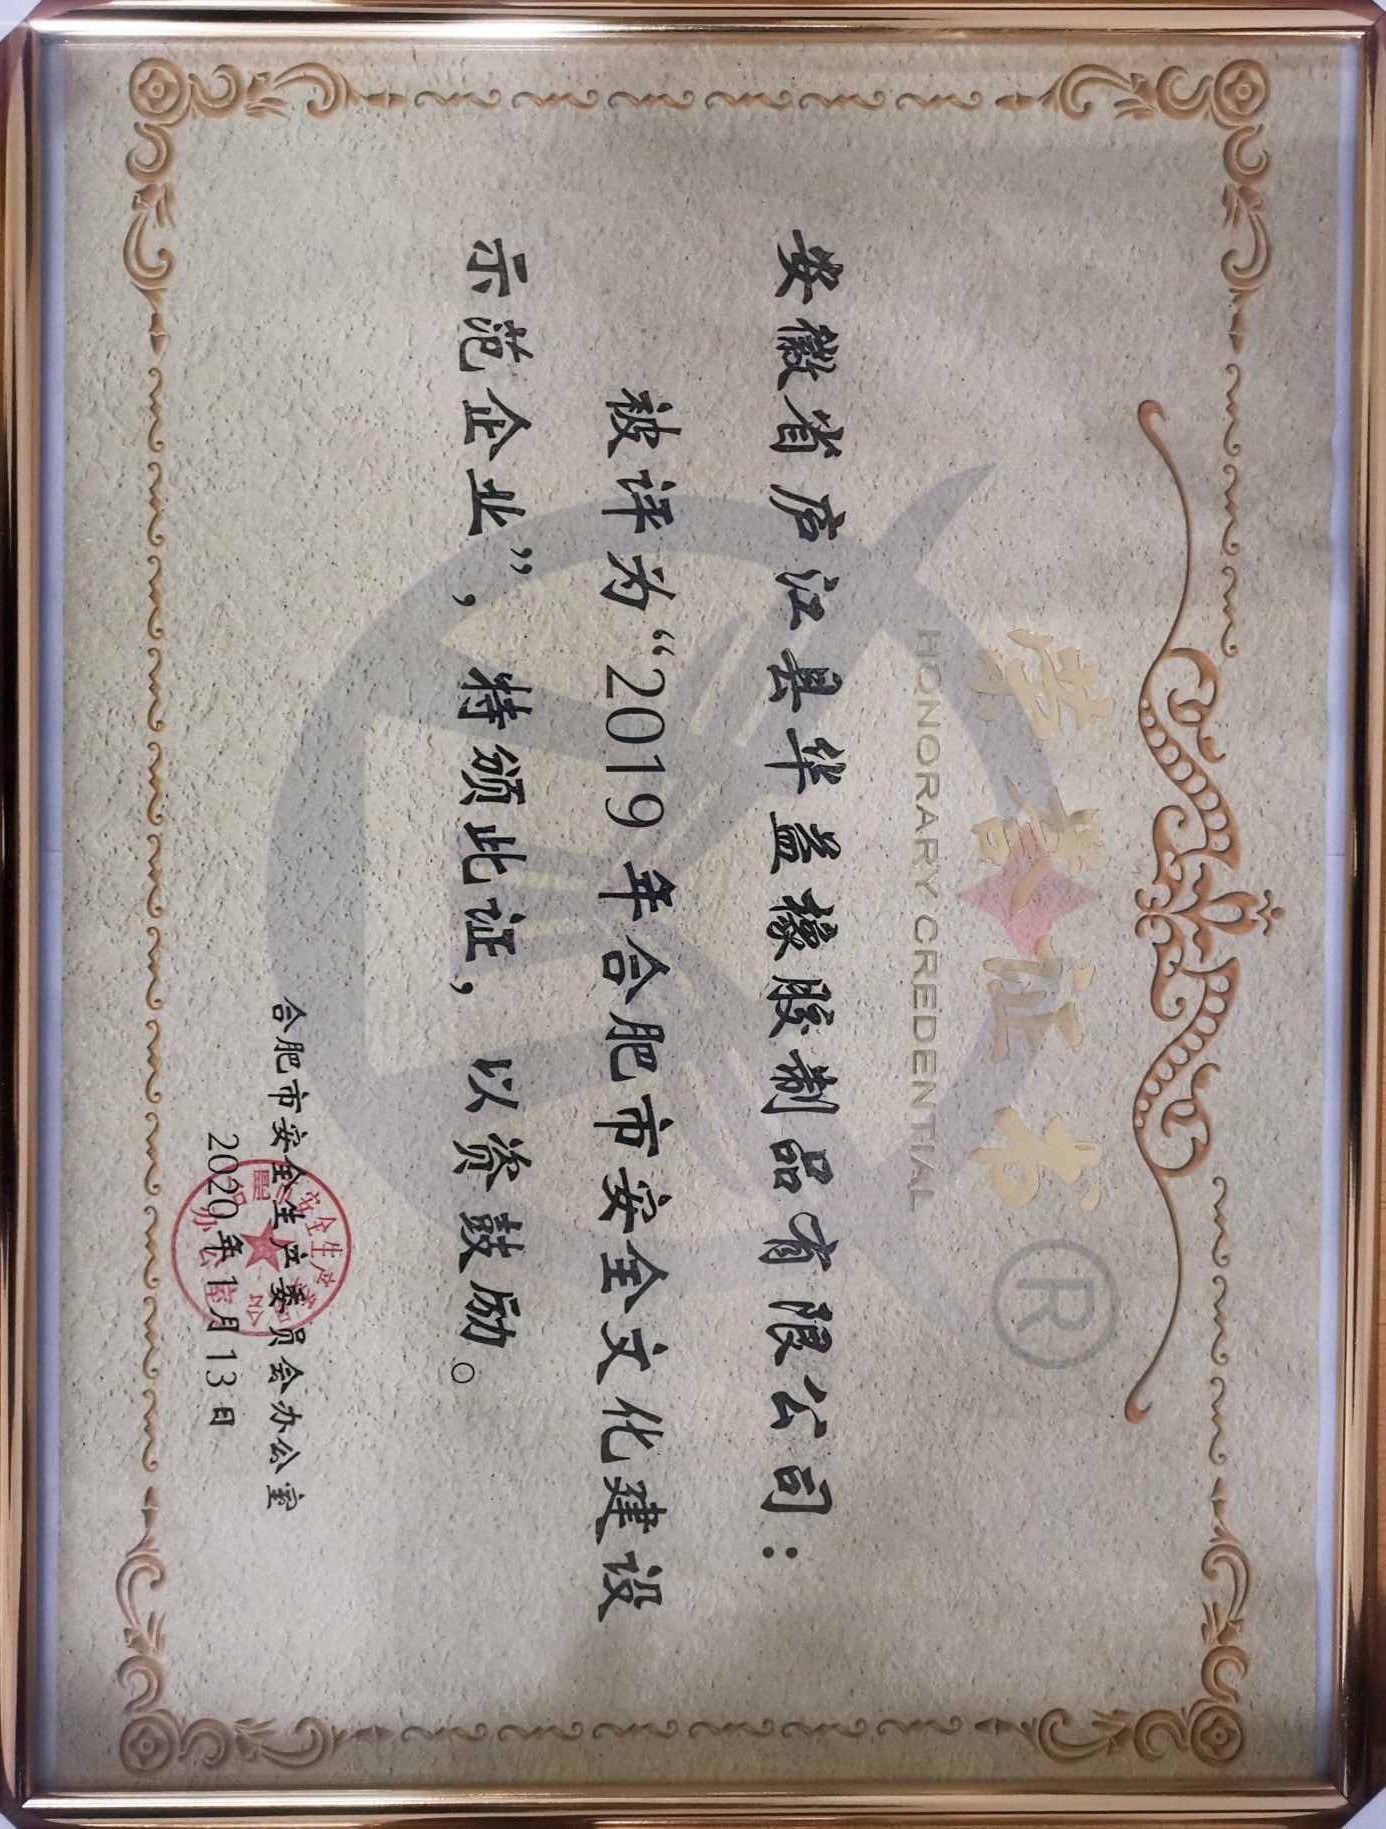 荣誉证书
HONORARY CREDENTIAL
®
安徽省庐江县华益橡胶制品有限公司：
被评为“2019年合肥市安全文化建设
示范企业”，特颁此证，以资鼓励。
合肥市安全生产委员会办公室
2020年1月13日